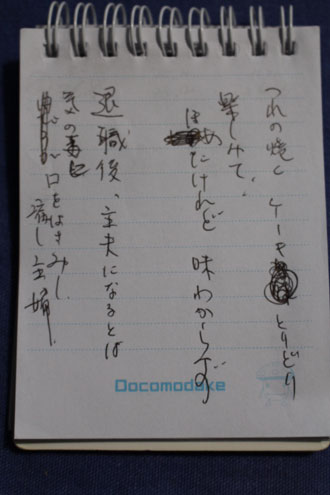 つれの焼く ケーキ とりどり
楽しみて、
ほめたけれど 味わからず
退職後、主夫になるとは
口をはさみし
し主婦
Docomodake